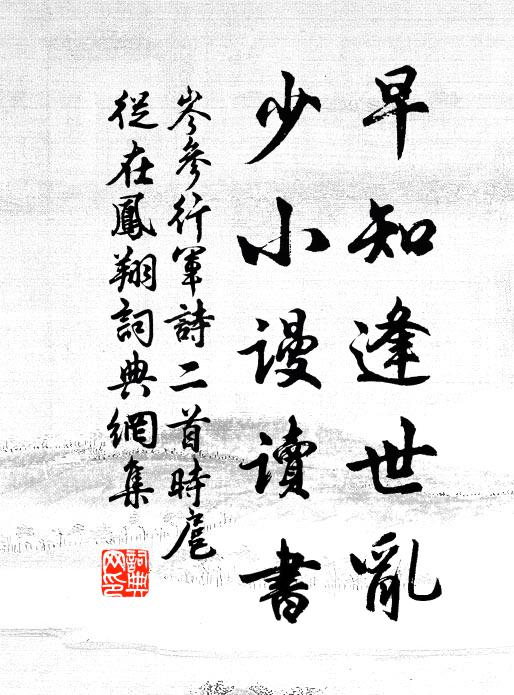 早知逢世亂
少小謾讀書
岑參行軍詩二首時扈
從在鳳翔詞典網集
詞典
网印